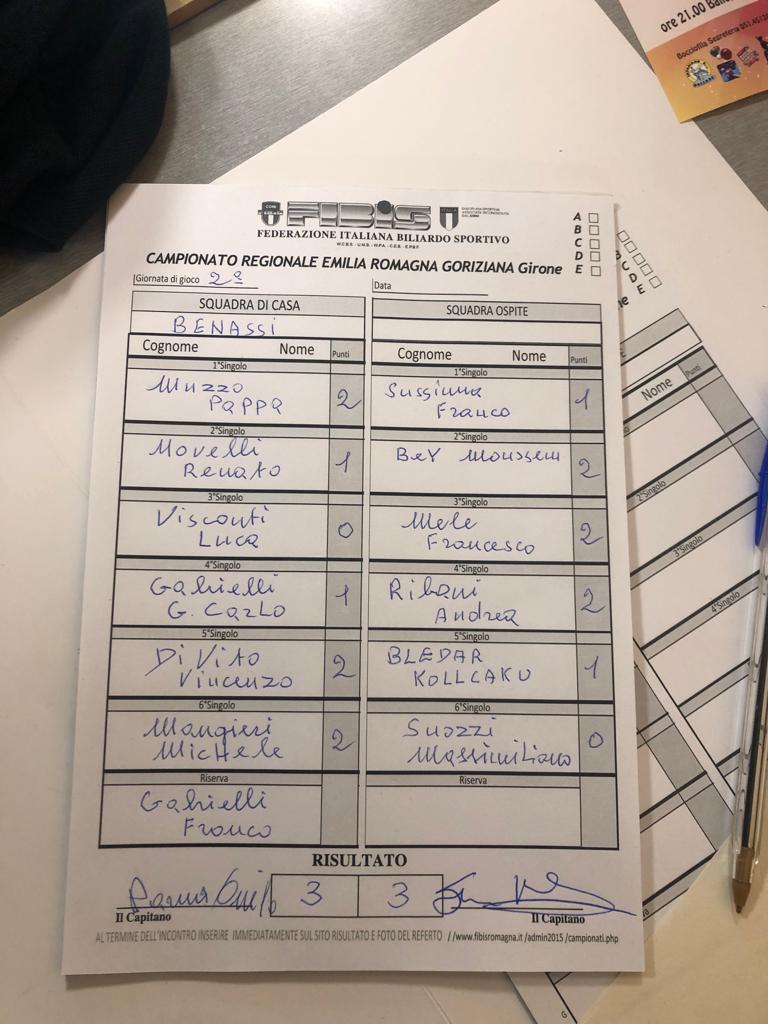 ore 21.00
Bocciofila Segreteria
FIBIS
FEDERAZIONE ITALIANA BILIARDO SPORTIVO
A
B
C
D
E
CAMPIONATO REGIONALE EMILIA ROMAGNA GORIZIANA Girone
Giornata di gioco 2ª
Data
SQUADRA DI CASA
BENASSI
SQUADRA OSPITE
Cognome Nome Punti
Cognome Nome Punti
1°Singolo
Muzzo
Pappa 2
1°Singolo
Franco 1
2°Singolo
Movelli
Renato 1
2°Singolo
BeY Moussem 2
3°Singolo
Visconti
Luca 0
3°Singolo
Mele
Francesco 2
4°Singolo
Gabrielli
G. Carlo 1
4°Singolo
Ribani
Andrea 2
5°Singolo
Di Vito
Vincenzo 2
5°Singolo
BLEDAR
KOLLCAKU 1
6°Singolo
Mangieri
Michele 2
6°Singolo
Suozzi
Massimiliano 0
Riserva
Gabrielli
Franco
Riserva
RISULTATO
3 3
Il Capitano
Il Capitano
AL TERMINE DELL'INCONTRO INSERIRE IMMEDIATAMENTE SUL SITO RISULTATO E FOTO DEL REFERTO //www.fibisromagna.it /admin2015 /campionati.php
B
C
D
E
Nome Punti
2°Singolo
3°Singolo
4°Singolo